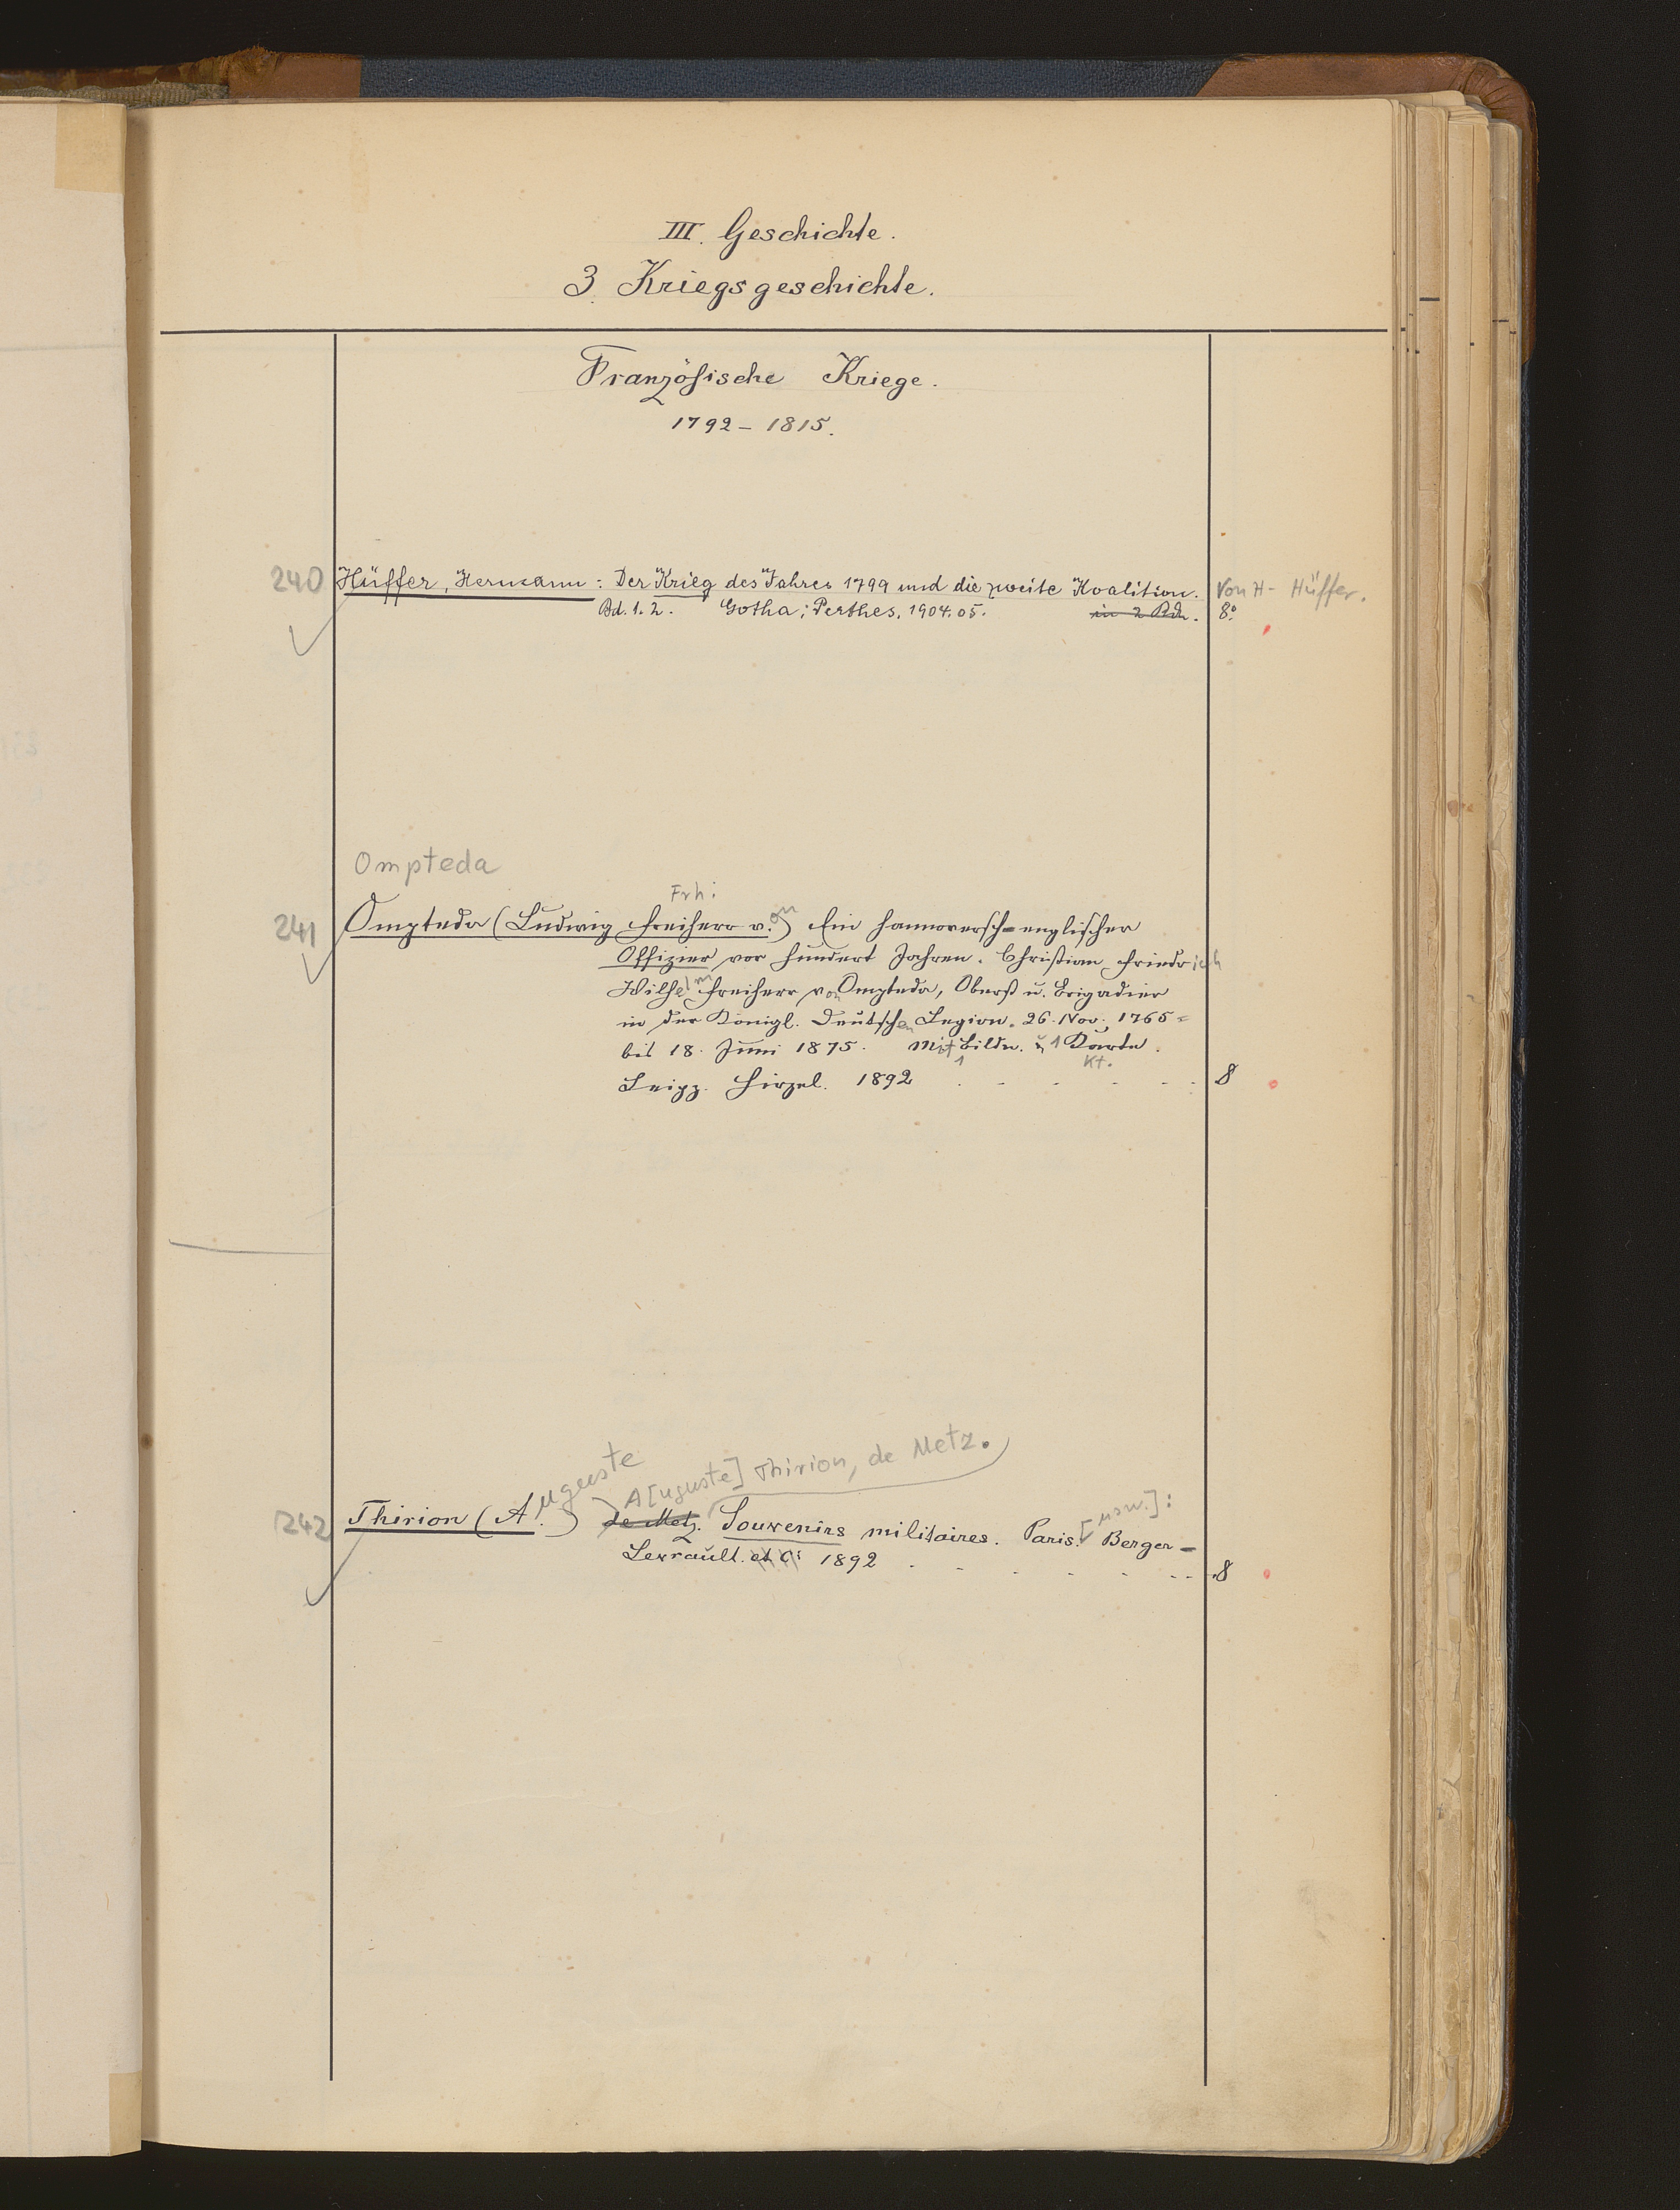 III. Geschichte.
3. Kriegsgeschichte.
Französische Kriege.
1792 – 1815.
240 Hüffer, Hermann: Der Krieg des Jahres 1799 und die zweite Koalition. Von H- Hüffer.
Bd. 1. 2. Gotha; Perthes, 1904. 05. in 2 Bdn. 8°.
Ompteda
Frh:
241 Ompteda (Ludwig Freiherr von) Ein hannoversch-englischer
Offizier vor hundert Jahren. Christian Friedrich
Wilhelm Freiherr von Ompteda, Oberst u. Brigadier
in der Königl. Deutschen Legion. 26. Nov. 1765 =
bis 18. Juni 1875. Mit 1 Bildn. u. 1 Karte.
Kt.
Leipz. Hirzel. 1892 . - - - - - 8
A[uguste] Thirion, de Metz.
242 Thirion (Auguste) de Metz. Souvenirs militaires. Paris. [usw.]: Berger-
Levrault. et Ci 1892 . - - - - - - 8